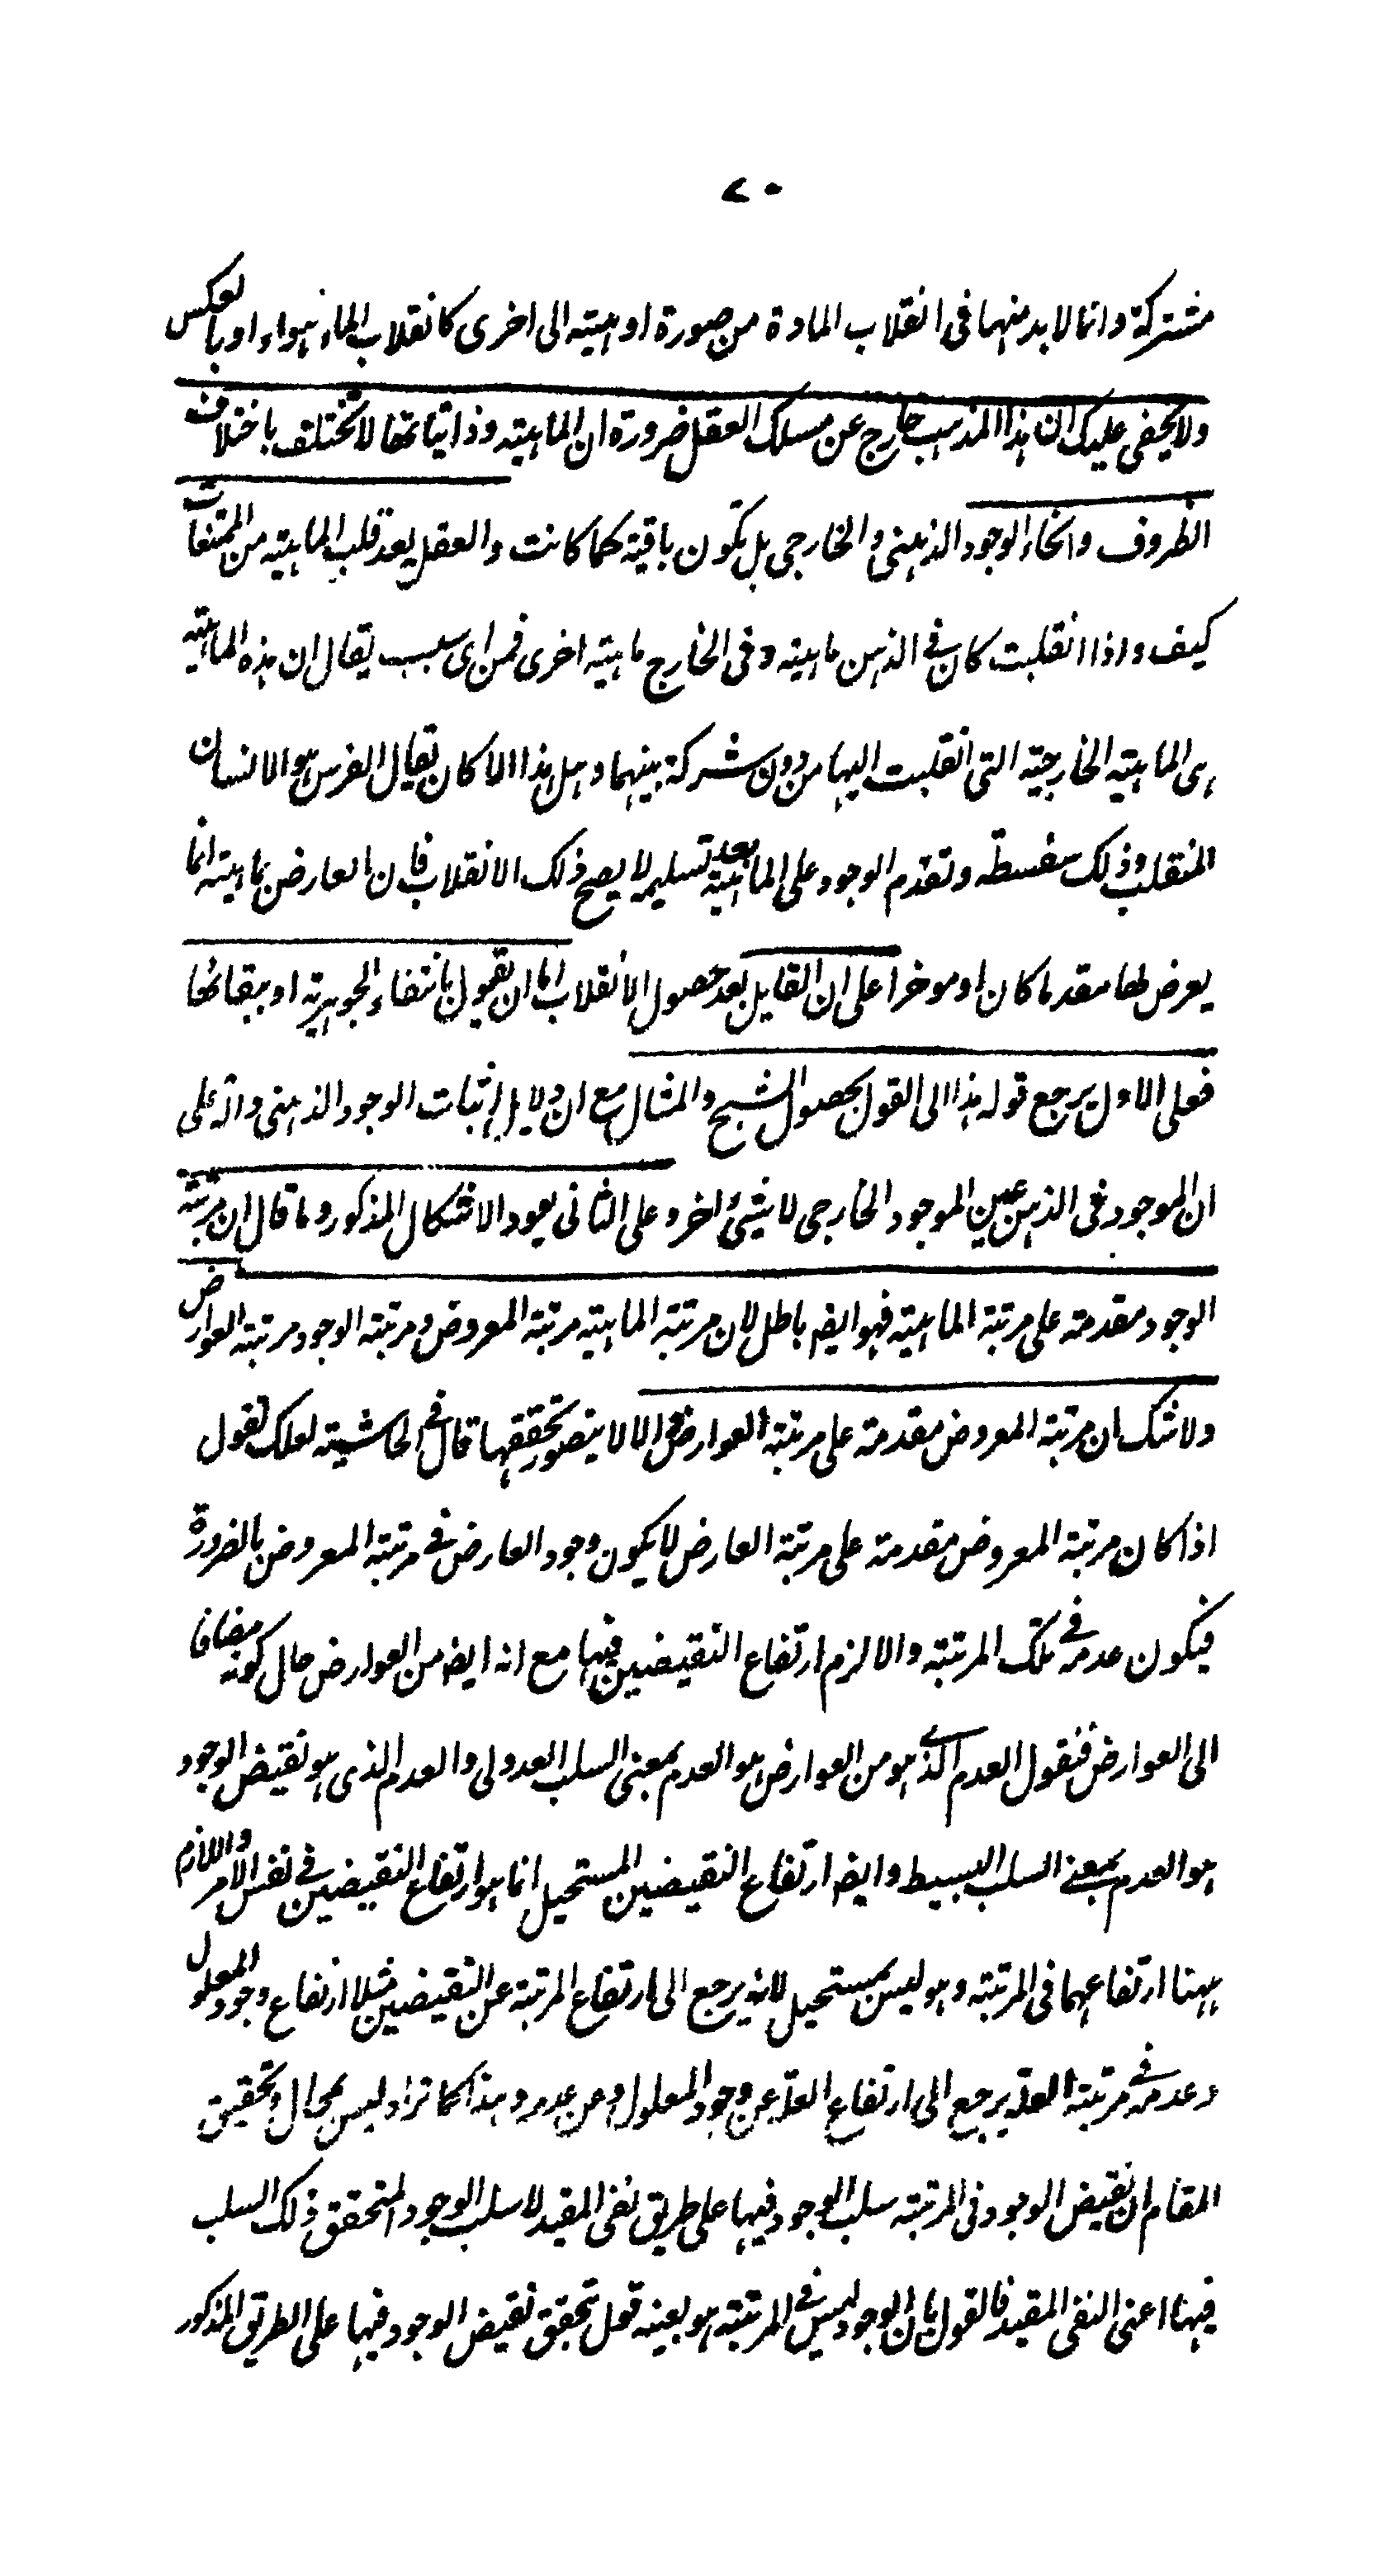 ٧٠
مشتركة وانما لا بد منهما فى انقلاب المادة من صورة او هيئته الى اخرى كانقلاب الماء هواء او بالعكس
ولا يخفى عليك ان هذا المذهب خارج عن مسلك العقل ضرورة ان الماهية وذاتياتها لا تختلف باختلاف
الظروف وانحاء الوجود الذهنى والخارجى بل تكون باقية كما كانت والعقل يعد قلب الماهية من الممتنعات
كيف واذا انقلبت كان فى الذهن ماهية وفى الخارج ماهية اخرى فمن اى سبب يقال ان هذه الماهية
هى الماهية الخارجية التى انقلبت اليها من دون شركة بينهما وهل هذا الا كان يقال الفرس هو الانسان
المنقلب وذلك سفسطة وتقدم الوجود على الماهية بعد تسليمه لا يصح ذلك الانقلاب فان العارض بماهية انما
يعرض لها مقدما كان او موخرا على ان القايل بعد حصول الانقلاب اما ان يقول بانتفاء الجوهرية او ببقائها
فعلى الاول يرجع قوله هذا الى القول بحصول الشبح والمثال مع ان دلايل اثبات الوجود الذهنى دالة على
ان الموجود فى الذهن عين الموجود الخارجى لا شىء اخر وعلى الثانى يعود الاشكال المذكور وما قال ان مرتبة
الوجود مقدمة على مرتبة الماهية فهو ايضا باطل لان مرتبة الماهية مرتبة المعروض ومرتبة الوجود مرتبة العوارض
ولا شك ان مرتبة المعروض مقدمة على مرتبة العوارض والا لا يتصور تحققها قال فى الحاشية لعلك تقول
اذا كان مرتبة المعروض مقدمة على مرتبة العارض لا يكون وجود العارض فى مرتبة المعروض بالضرورة
فيكون عدمه فى تلك المرتبة والا لزم ارتفاع النقيضين فيها مع انه ايضا من العوارض حال كونه مضافا
الى العوارض فنقول العدم الذى هو من العوارض هو العدم بمعنى السلب العدولى والعدم الذى هو نقيض الوجود
هو العدم بمعنى السلب البسيط وايضا ارتفاع النقيضين المستحيل انما هو ارتفاع النقيضين فى نفس الامر واللازم
ههنا ارتفاعهما فى المرتبة وهو ليس بمستحيل لانه يرجع الى ارتفاع المرتبة عن النقيضين مثلا ارتفاع وجود المعلول
وعدمه فى مرتبة العلة يرجع الى ارتفاع العلة عن وجود المعلول وعن عدمه وهذا كما تراه ليس بمحال وتحقيق
المقام ان نقيض الوجود فى المرتبة سلب الوجود فيها على طريق نفى المقيد لا سلب الوجود المتحقق ذلك السلب
فيها اعنى النفى المقيد فالقول بان الوجود ليس فى المرتبة هو بعينه قول بتحقق نقيض الوجود فيها على الطريق المذكور